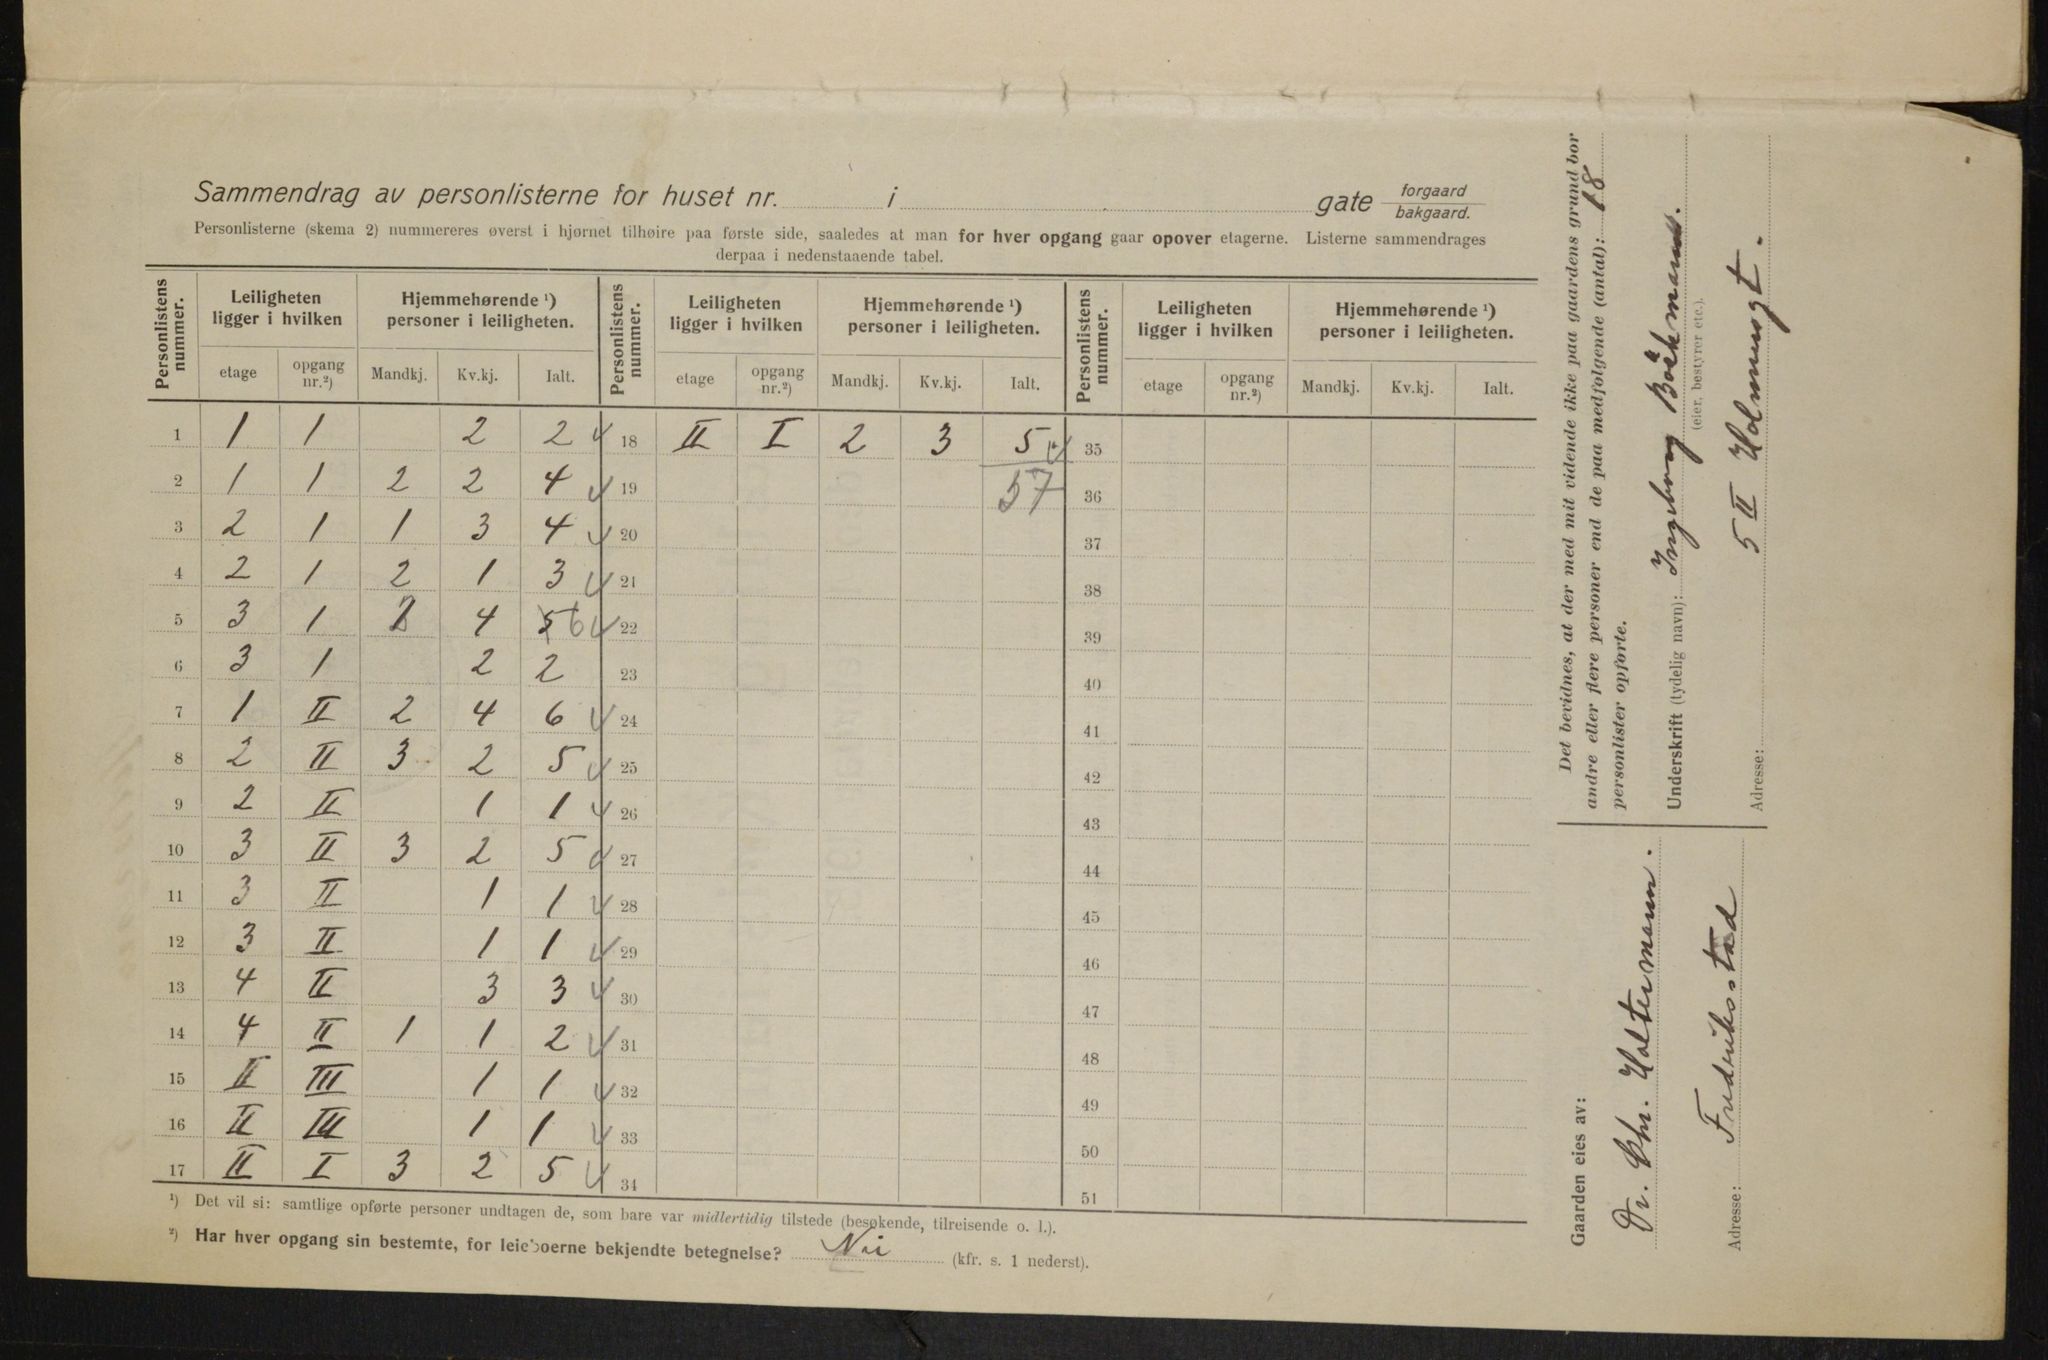 Sammendrag av personlisterne for huset nr. i gate forgaard bakgaard.
Personlisterne (skema 2) nummereres øverst i hjørnet tilhøire paa første side, saaledes at man for hver opgang gaar opover etagerne. Listerne sammendrages
derpaa i nedenstaaende tabel.
Personlistens nummer. Leiligheten ligger i hvilken Hjemmehørende ¹) personer i leiligheten. Personlistens nummer. Leiligheten ligger i hvilken Hjemmehørende ¹) personer i leiligheten. Personlistens nummer. Leiligheten ligger i hvilken Hjemmehørende ¹) personer i leiligheten.
etage opgang nr.²) Mandkj. Kv.kj. Ialt. etage opgang nr.²) Mandkj. Kv.kj. Ialt. etage opgang nr.²) Mandkj. Kv.kj. Ialt.
1 1 1 2 2 18 II I 2 3 5 35
2 1 1 2 2 4 19 57 36
3 2 1 1 3 4 20 37
4 2 1 2 1 3 21 38
5 3 1 2 4 5 6 22 39
6 3 1 2 2 23 40
7 1 II 2 4 6 24 41
8 2 II 3 2 5 25 42
9 2 II 1 1 26 43
10 3 II 3 2 5 27 44
11 3 II 1 1 28 45
12 3 II 1 1 29 46
13 4 II 3 3 30 47
14 4 II 1 1 2 31 48
15 II III 1 1 32 49
16 II III 1 1 33 50
17 II I 3 2 5 34 51
¹) Det vil si: samtlige opførte personer undtagen de, som bare var midlertidig tilstede (besøkende, tilreisende o. l.).
²) Har hver opgang sin bestemte, for leieboerne bekjendte betegnelse? Nei (kfr. s. 1 nederst).
Det bevidnes, at der med mit vidende ikke paa gaardens grund bor
andre eller flere personer end de paa medfølgende (antal): 18
personlister opførte.
Underskrift (tydelig navn): Ingeborg Böckmann.
(eier, bestyrer etc.).
Adresse: 5 II Holmensgt.
Gaarden eies av:
Dr. Chr. Holtermann.
Adresse: Fredriksstad